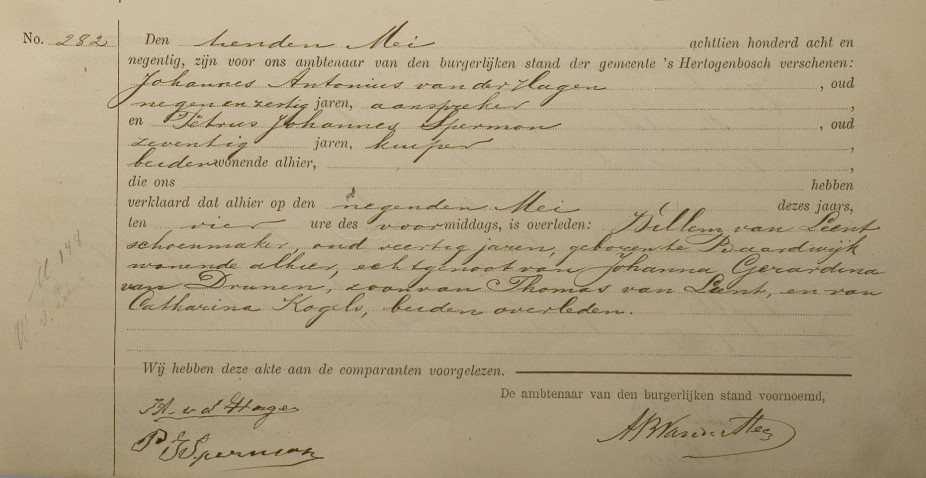 No. 282
Den tienden Mei achttien honderd acht en
negentig, zijn voor ons ambtenaar van den burgerlijken stand der gemeente 's Hertogenbosch verschenen:
Johannes Antonius van der Hagen, oud
negen en zestig jaren, aanspreker,
en Petrus Johannes Spermon, oud
zeventig jaren, kuiper,
beiden wonende alhier,
die ons hebben
verklaard dat alhier op den negenden Mei dezes jaars,
ten vier ure des voormiddags, is overleden: Willem van Leent
schoenmaker, oud veertig jaren, geboren te Baardwijk
wonende alhier, echtgenoot van Johanna Gerardina
van Drunen, zoon van Thomas van Leent, en van
Catharina Kogels, beiden overleden.
Wij hebben deze akte aan de comparanten voorgelezen.
De ambtenaar van den burgerlijken stand voornoemd,
v d Hage
P J Spermon